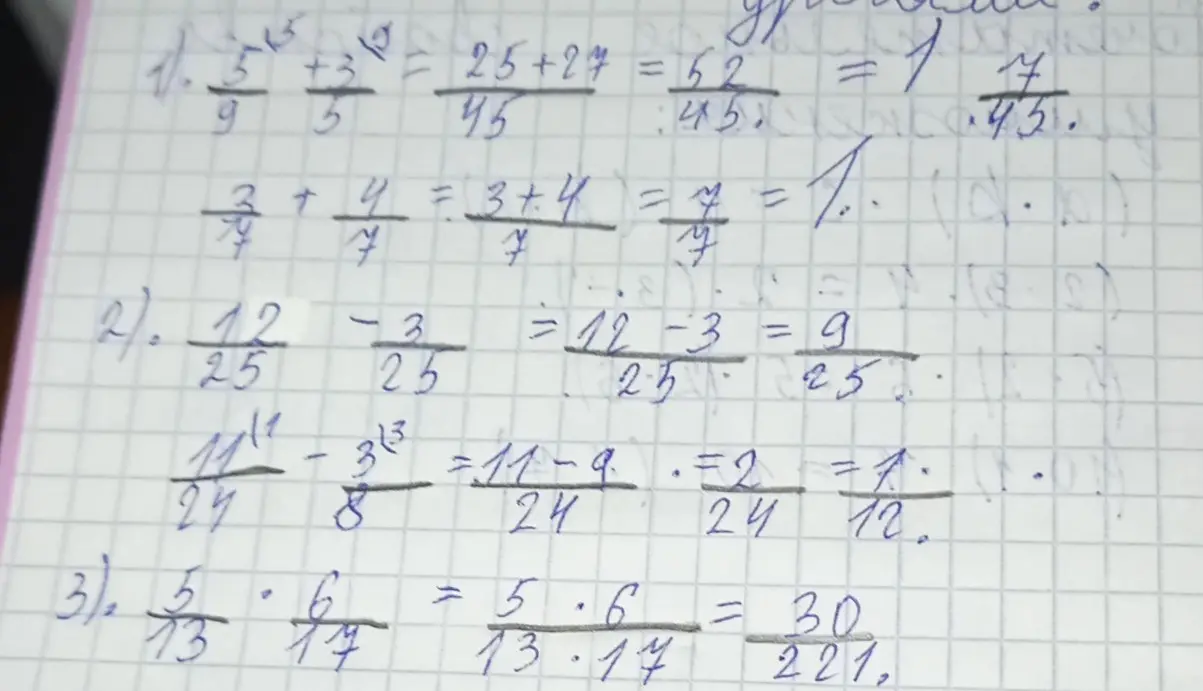 1). 5\5/9 + 3\9/5 = 25+27/45 = 52/45. = 1 7/45.
3/7 + 4/7 = 3+4/7 = 7/7 = 1.
2). 12/25 - 3/25 = 12-3/25 = 9/25.
11\1/24 - 3\3/8 = 11-9/24 = 2/24 = 1/12.
3). 5/13 · 6/17 = 5·6/13·17 = 30/221.